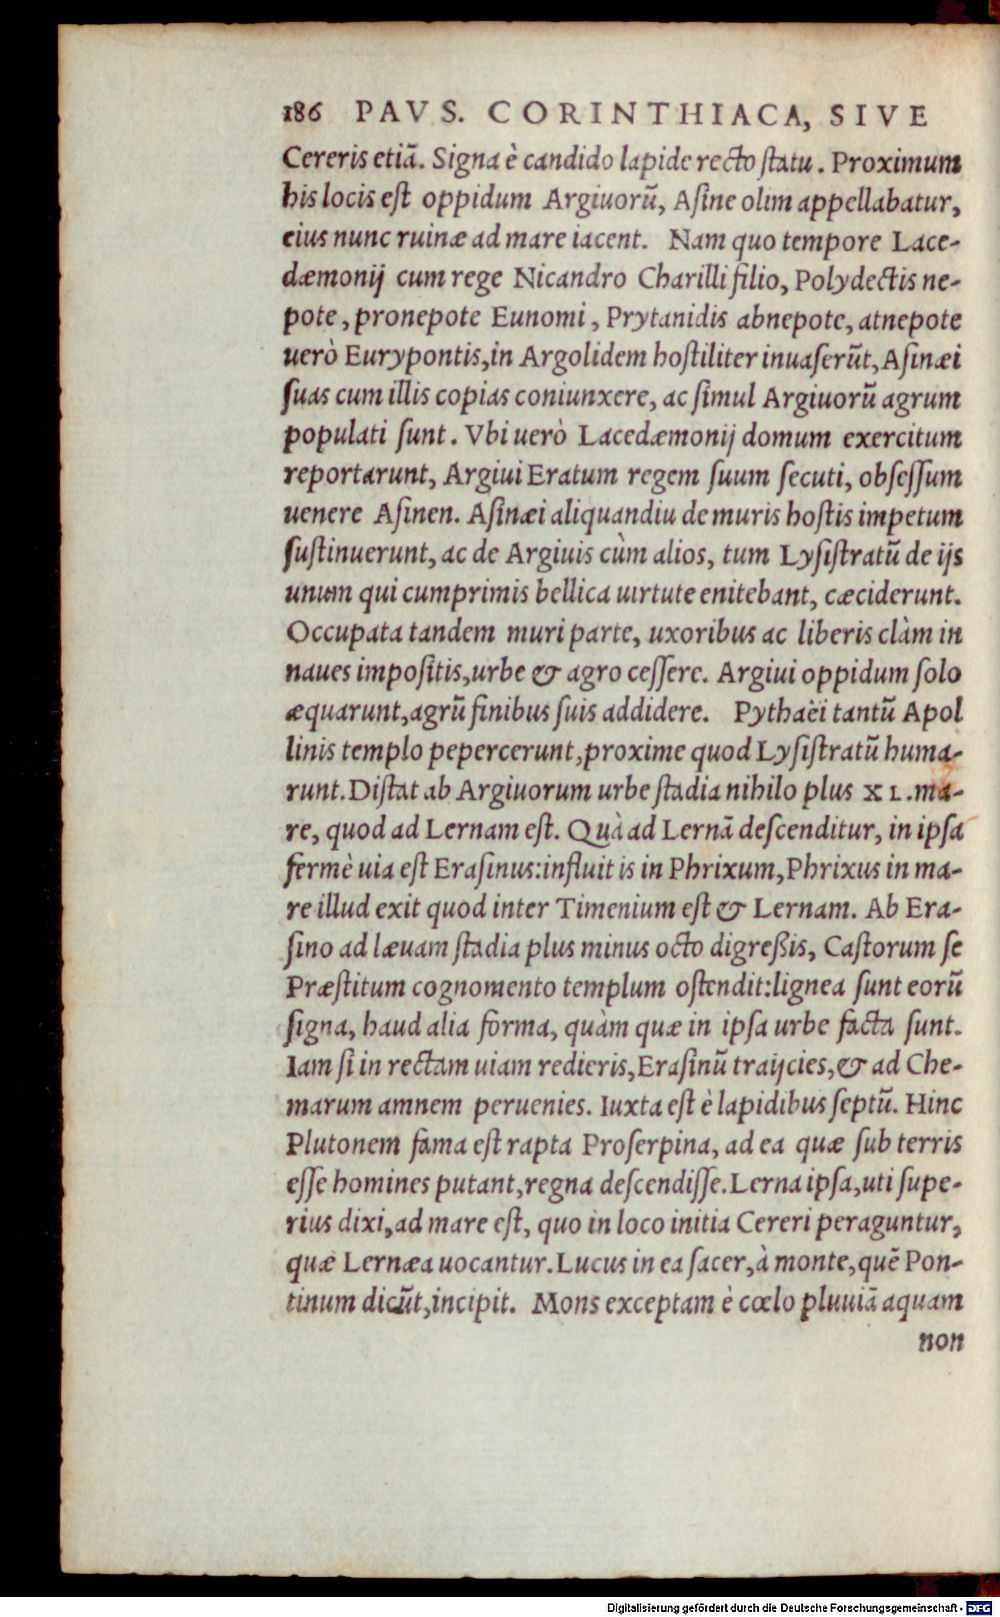 186 PAVS. CORINTHIACA, SIVE
Cereris etiã. Signa è candido lapide recto ſtatu. Proximum
his locis eſt oppidum Argiuorũ, Aſine olim appellabatur,
eius nunc ruinæ ad mare iacent. Nam quo tempore Lace-
dæmonij cum rege Nicandro Charilli filio, Polydectis ne-
pote, pronepote Eunomi, Prytanidis abnepote, atnepote
uerò Eurypontis, in Argolidem hoſtiliter inuaſerũt, Aſinæi
ſuas cum illis copias coniunxere, ac ſimul Argiuorũ agrum
populati ſunt. Vbi uerò Lacedæmonij domum exercitum
reportarunt, Argiui Eratum regem ſuum ſecuti, obſeſſum
uenere Aſinen. Aſinæi aliquandiu de muris hoſtis impetum
ſuſtinuerunt, ac de Argiuis cùm alios, tum Lyſiſtratũ de ijs
unum qui cumprimis bellica uirtute enitebant, cæciderunt.
Occupata tandem muri parte, uxoribus ac liberis clàm in
naues impoſitis, urbe & agro ceſſere. Argiui oppidum ſolo
æquarunt, agrũ finibus ſuis addidere. Pythaèi tantũ Apol
linis templo pepercerunt, proxime quod Lyſiſtratũ huma-
runt. Diſtat ab Argiuorum urbe ſtadia nihilo plus XL. ma-
re, quod ad Lernam eſt. Quà ad Lernã deſcenditur, in ipſa
fermè uia eſt Eraſinus: influit is in Phrixum, Phrixus in ma-
re illud exit quod inter Timenium eſt & Lernam. Ab Era-
ſino ad læuam ſtadia plus minus octo digreßis, Caſtorum ſe
Præſtitum cognomento templum oſtendit: lignea ſunt eorũ
ſigna, haud alia forma, quàm quæ in ipſa urbe facta ſunt.
Iam ſi in rectam uiam redieris, Eraſinũ traijcies, & ad Che-
marum amnem peruenies. Iuxta eſt è lapidibus ſeptũ. Hinc
Plutonem fama eſt rapta Proſerpina, ad ea quæ ſub terris
eſſe homines putant, regna deſcendiſſe. Lerna ipſa, uti ſupe-
rius dixi, ad mare eſt, quo in loco initia Cereri peraguntur,
quæ Lernæa uocantur. Lucus in ea ſacer, à monte, quẽ Pon-
tinum dicũt, incipit. Mons exceptam è cœlo pluuiã aquam
non
Digitalisierung gefördert durch die Deutsche Forschungsgemeinschaft - DFG